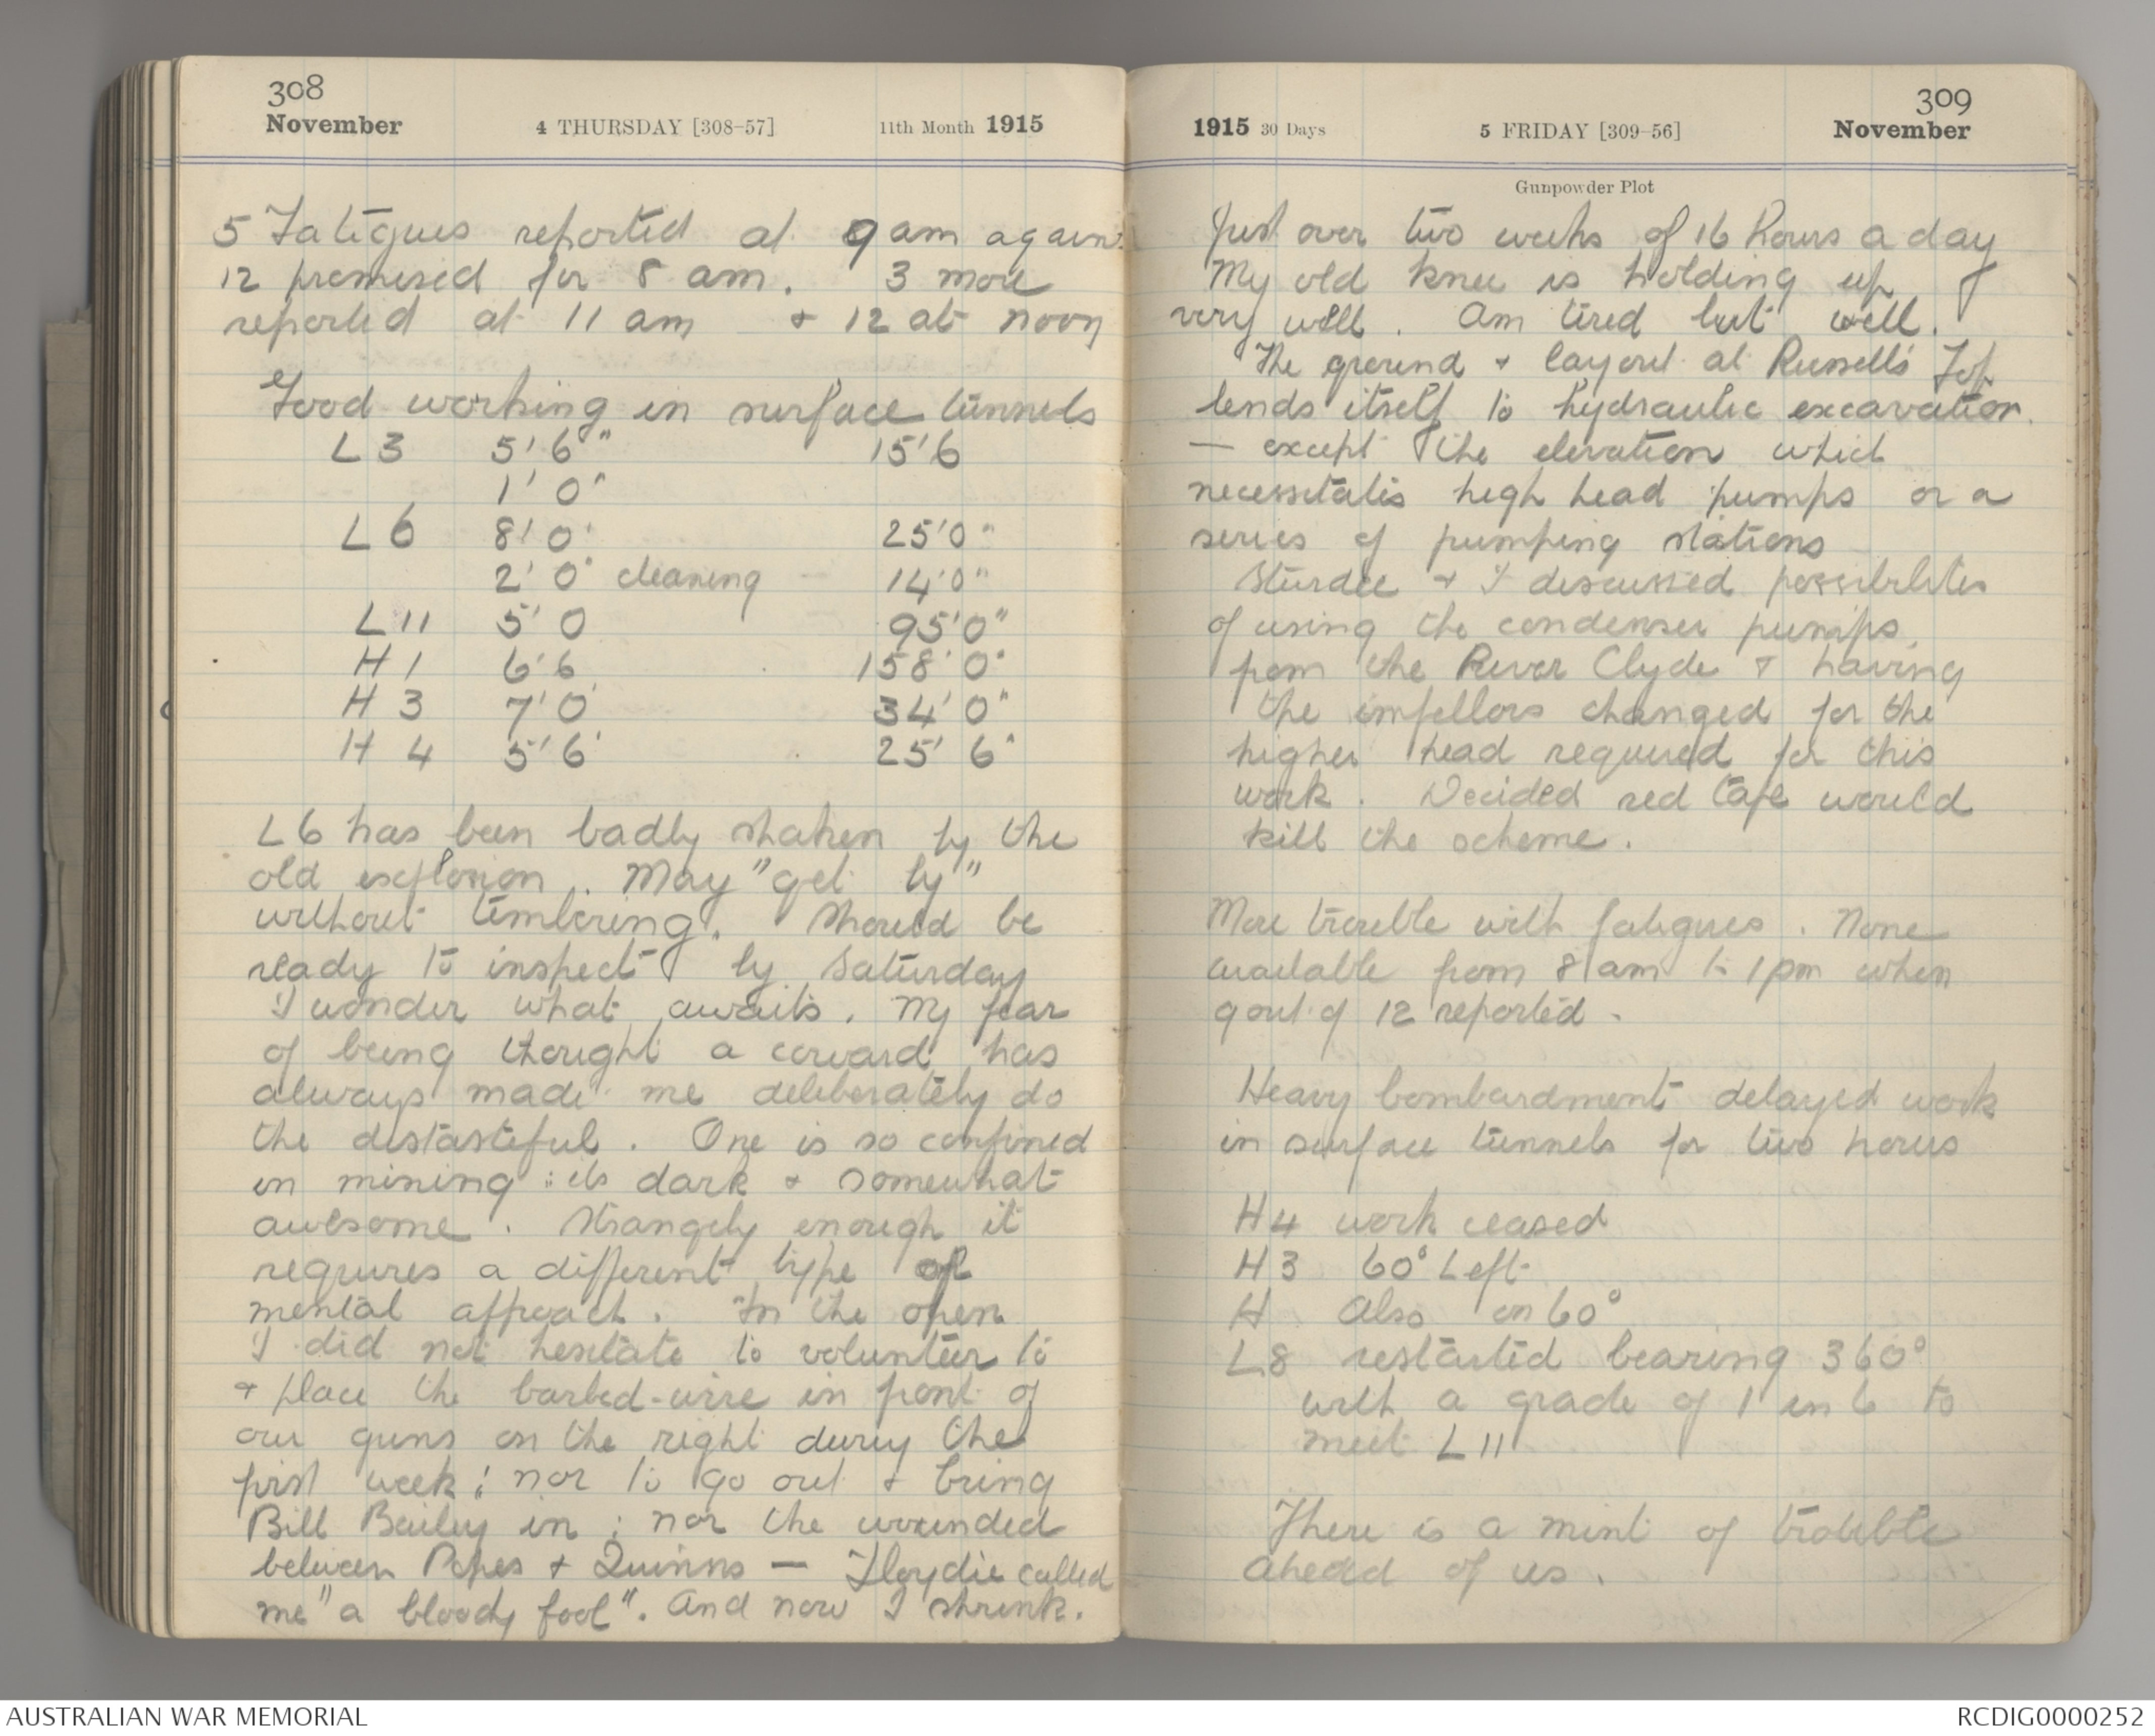 308
November 4 THURSDAY [308–57] 11th Month 1915
5 Fatigues reported at 9 am again.
12 promised for 8 am. 3 more
reported at 11 am & 12 at noon
Good working in surface tunnels
L 3 5' 6" 15' 6
1' 0"
L 6 8' 0" 25' 0"
2' 0" cleaning — 14' 0"
L 11 5' 0 95' 0"
H 1 6' 6 158' 0"
H 3 7' 0' 34' 0"
H 4 5' 6' 25' 6"
L 6 has been badly shaken by the
old explosion. May "get by"
without timbering. Should be
ready to inspect by Saturday
I wonder what awaits. My fear
of being thought a coward has
always made me deliberately do
the distasteful. One is so confined
in mining: its dark & somewhat
awesome. Strangely enough it
requires a different type of
mental approach. In the open
I did not hesitate to volunteer to
& place the barbed-wire in front of
our guns on the right during the
first week; nor to go out & bring
Bill Bailey in; nor the wounded
between Popes & Quinns — Floydie called
me "a bloody fool". And now I shrink.
309
1915 30 Days 5 FRIDAY [309–56] November
Gunpowder Plot
Just over two weeks of 16 hours a day
My old knee is holding up
very well. Am tired but well.
The ground & layout at Russell's Top
lends itself to hydraulic excavation.
— except the elevation which
necessitates high head pumps or a
series of pumping stations
Sturdee & I discussed possibilities
of using the condenser pumps,
from the River Clyde & having
the impellors changed for the
higher head required for this
work. Decided red tape would
kill the scheme.
More trouble with fatigues. None
available from 8 am to 1 pm when
9 out of 12 reported.
Heavy bombardment delayed work
in surface tunnels for two hours
H 4 work ceased
H 3 60° Left
H Also on 60°
L8 restarted bearing 360°
with a grade of 1 in 6 to
meet L 11
There is a mint of trouble
ahead of us.
AUSTRALIAN WAR MEMORIAL RCDIG0000252